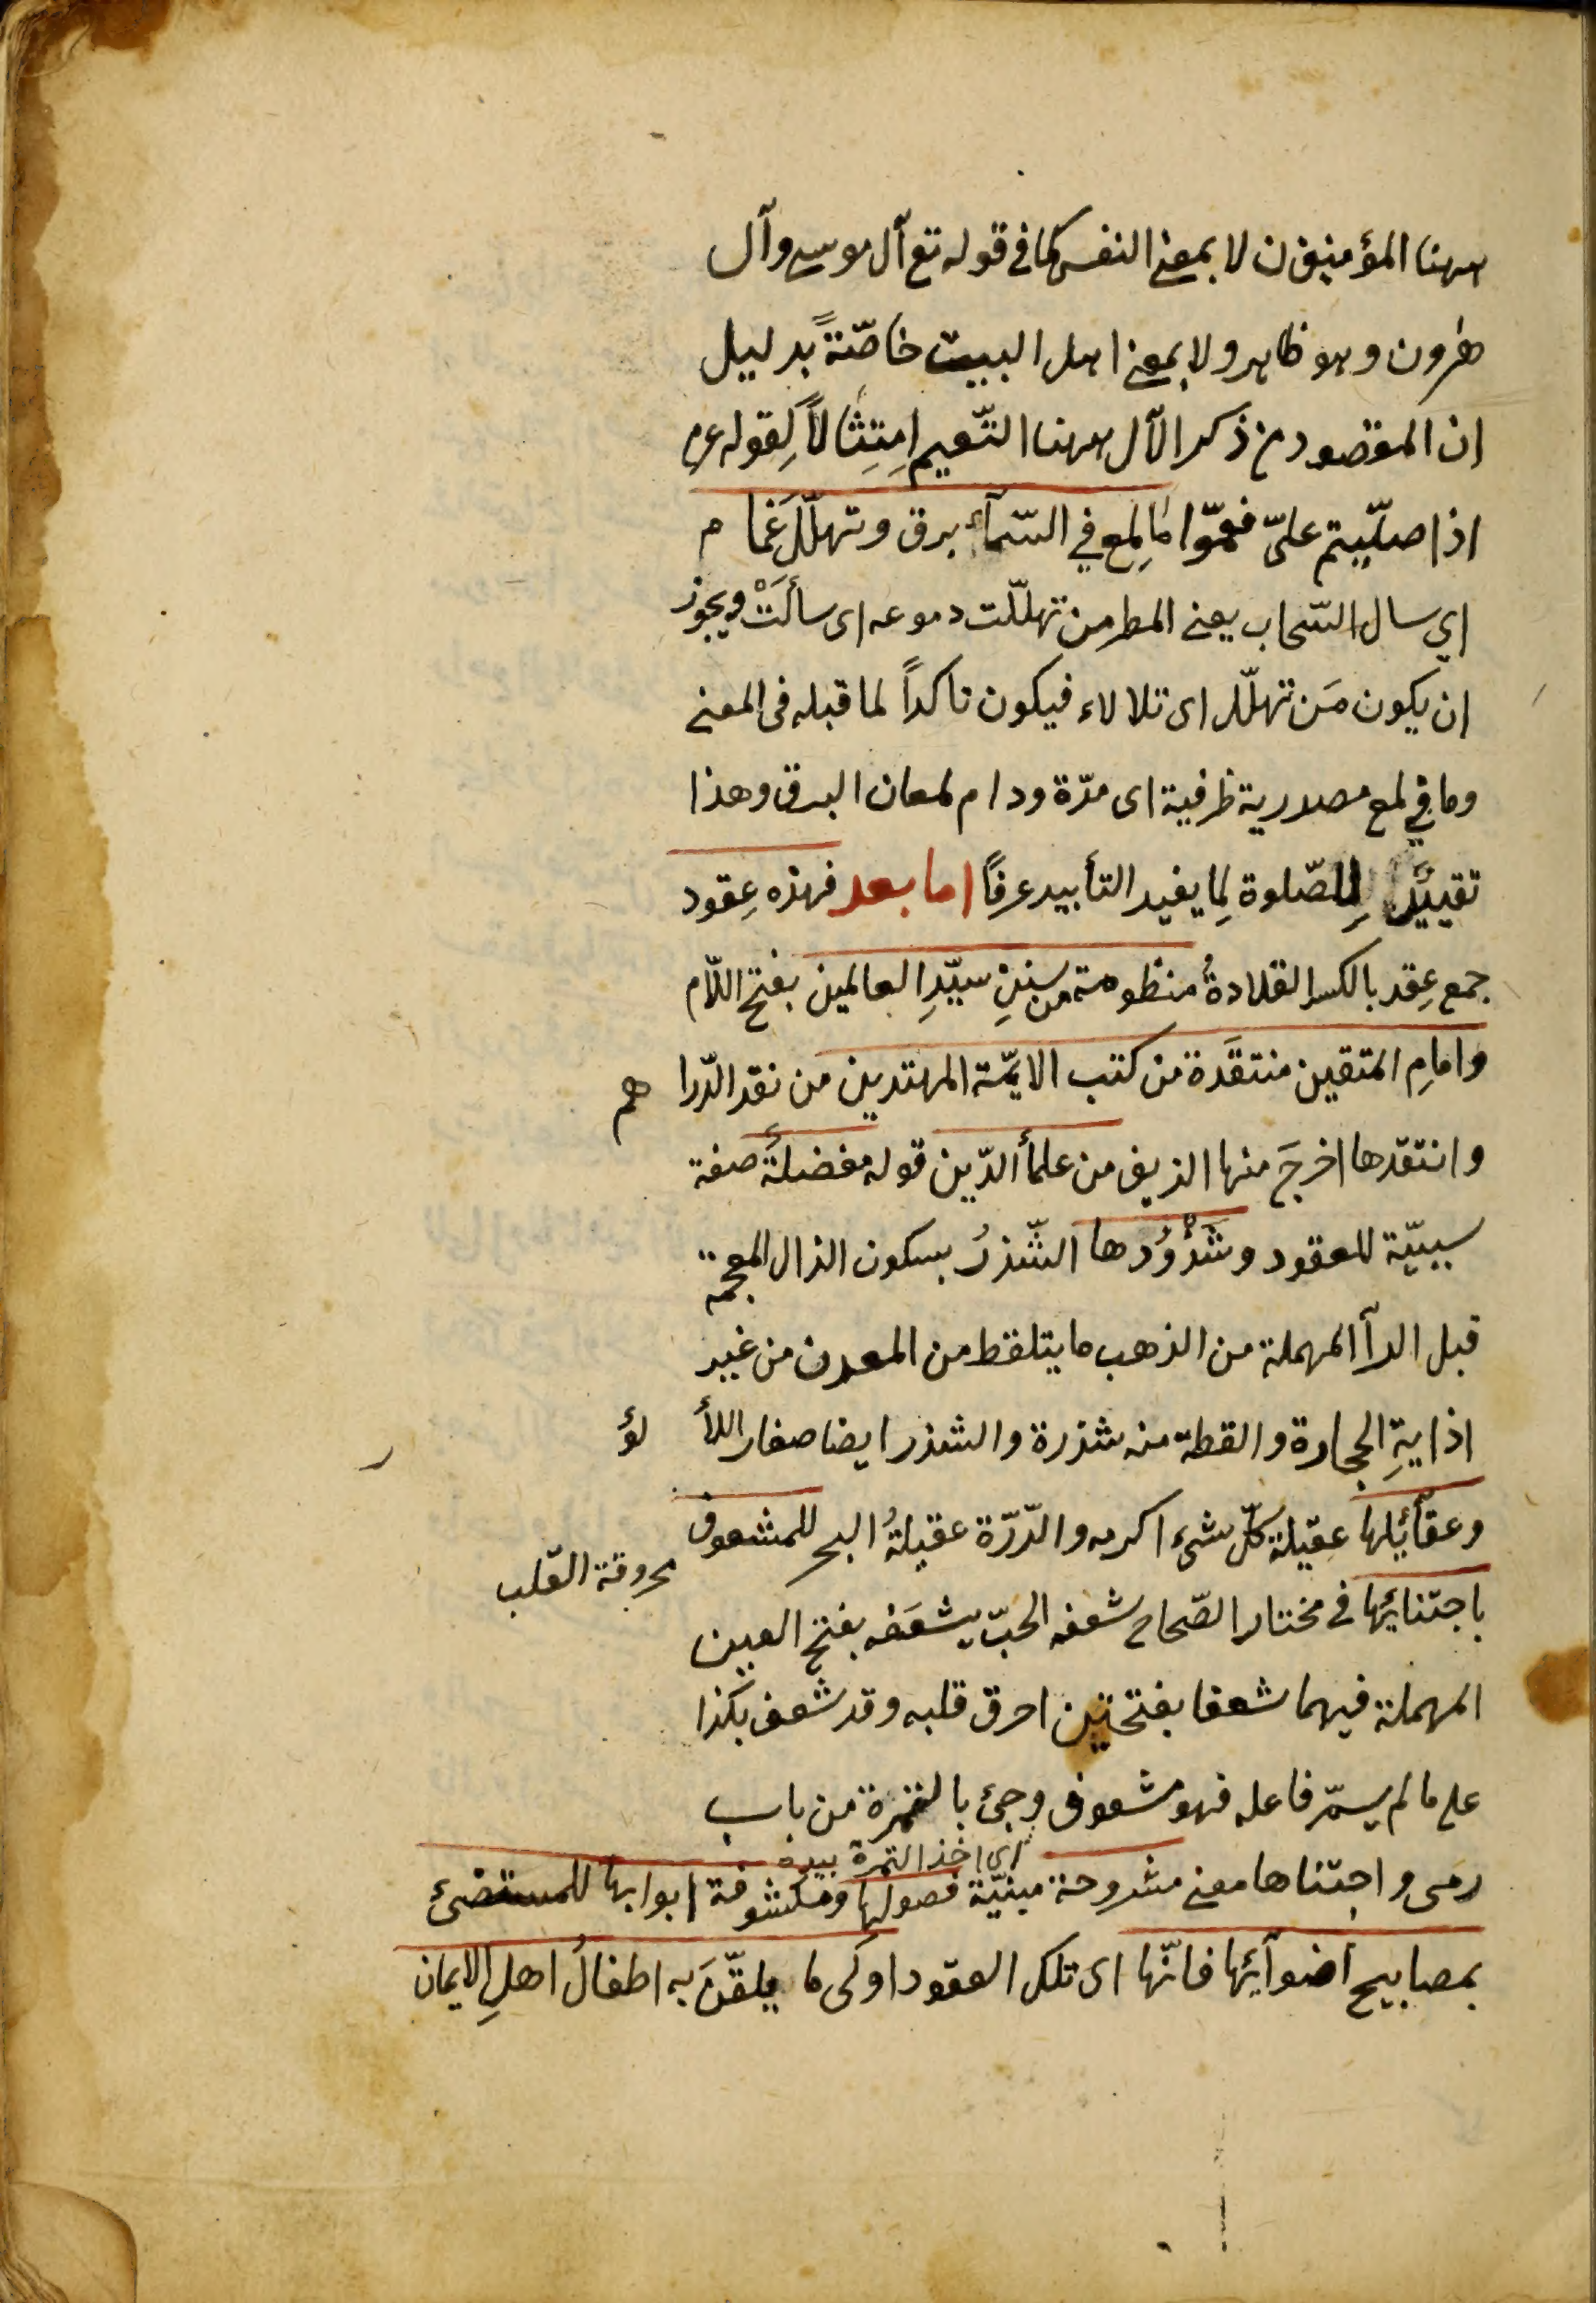 ههنا المؤمنون لا بمعنى النفس كما فى قوله تع آل موسى وآل
هرون وهو ظاهر ولا بمعنى اهل البيت خاصّةً بدليل
ان المقصود من ذكر الآل ههنا التّعميم اِمتِثالاً لِقوله عم
اذا صلّيتم علىّ فعمّوا ما لمع في السّمآء برق وتهلّل غمام
اي سال السّحاب يعنى المطر من تهلّلت دموعه اى سألَتْ ويجوز
ان يكون مَن تهلّل اى تلالاء فيكون تاكداً لما قبله فى المعنى
وما في لمع مصدرية ظرفية اى مدّة ودام لمعان البرق وهذا
تقييدٌ لِلصّلوة لِما يفيد التأبيد عرفاً اما بعد فهذه عِقود
جمع عِقد بالكسر القلادةُ منظومة من سننِ سيّدِ العالمين بفتح اللّام
وامامِ المتقين منتقَدة من كتب الايمّة المهتدين من نقد الدّراهم
وانتقدها اخرجَ منها الزيف من علمأ الدّين قوله مفضلةً صفة
سببيّة للعقود وشَذْوُدها الشّذرُ بسكون الذال المعجمة
قبل الرآ المهملة من الذهب ما يتلقط من المعدن من غير
اذابةِ الحجارة والقطة منه شذرة والشذر ايضا صغار اللألؤ
وعقآئِلها عقيلة كلّ شىء اكرمه والدّرّة عقيلةُ البحر للمشعوف
محروقة القلب
باجتنائِها فى مختار الصّحاح شعفه الحبّ يشعَفه بفتح العين
المهملة فيهما شعفا بفتحتين احرق قلبه وقد شعف بكذا
على ما لم يسمّ فاعله فهو مشعوف وجىٔ بالثمرة من باب
اى اخذ الثمرة بيده
رمى واجتناها معنى مشروحة مبنيّة فصولها ومكشوفة ابوابها للمستضئ
بمصابيح اضوآئِها فانّها اى تلك العقود اولى ما يلقّنَ به اطفالُ اهلِ الايمان